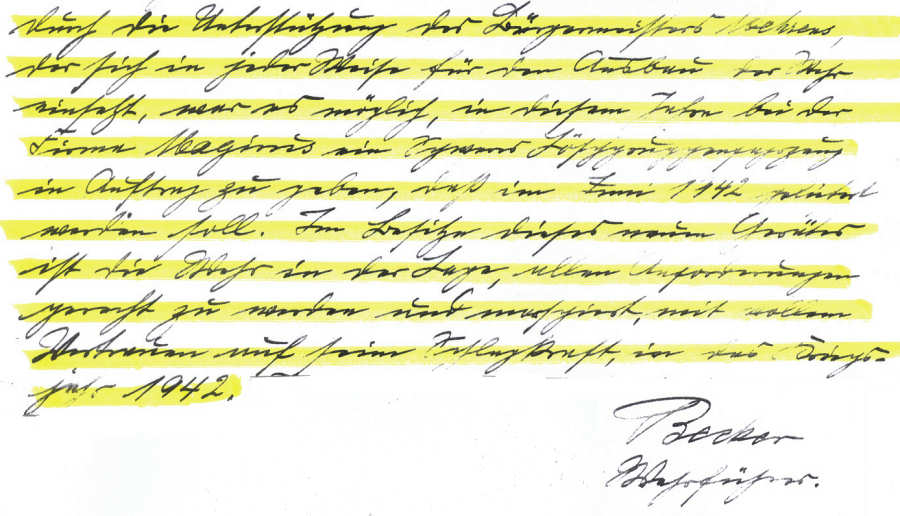 durch die Unterstützung des Bürgermeisters Mehrens,
der sich in jeder Weise für den Ausbau der Wehr
einsetzt, war es möglich, in diesem Jahre bei der
Firma Magirus ein Schweres Löschgruppenfahrzeug
in Auftrag zu geben, daß im Juni 1942 geliefert
werden soll. Im Besitze dieses neuen Gerätes
ist die Wehr in der Lage, allen Anforderungen
gerecht zu werden und marschiert, mit vollem
Vertrauen auf seine Schlagkraft, in das Kriegs-
jahr 1942.
Becker
Wehrführer.